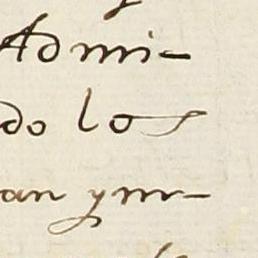 Admi-
do los
an ynr-